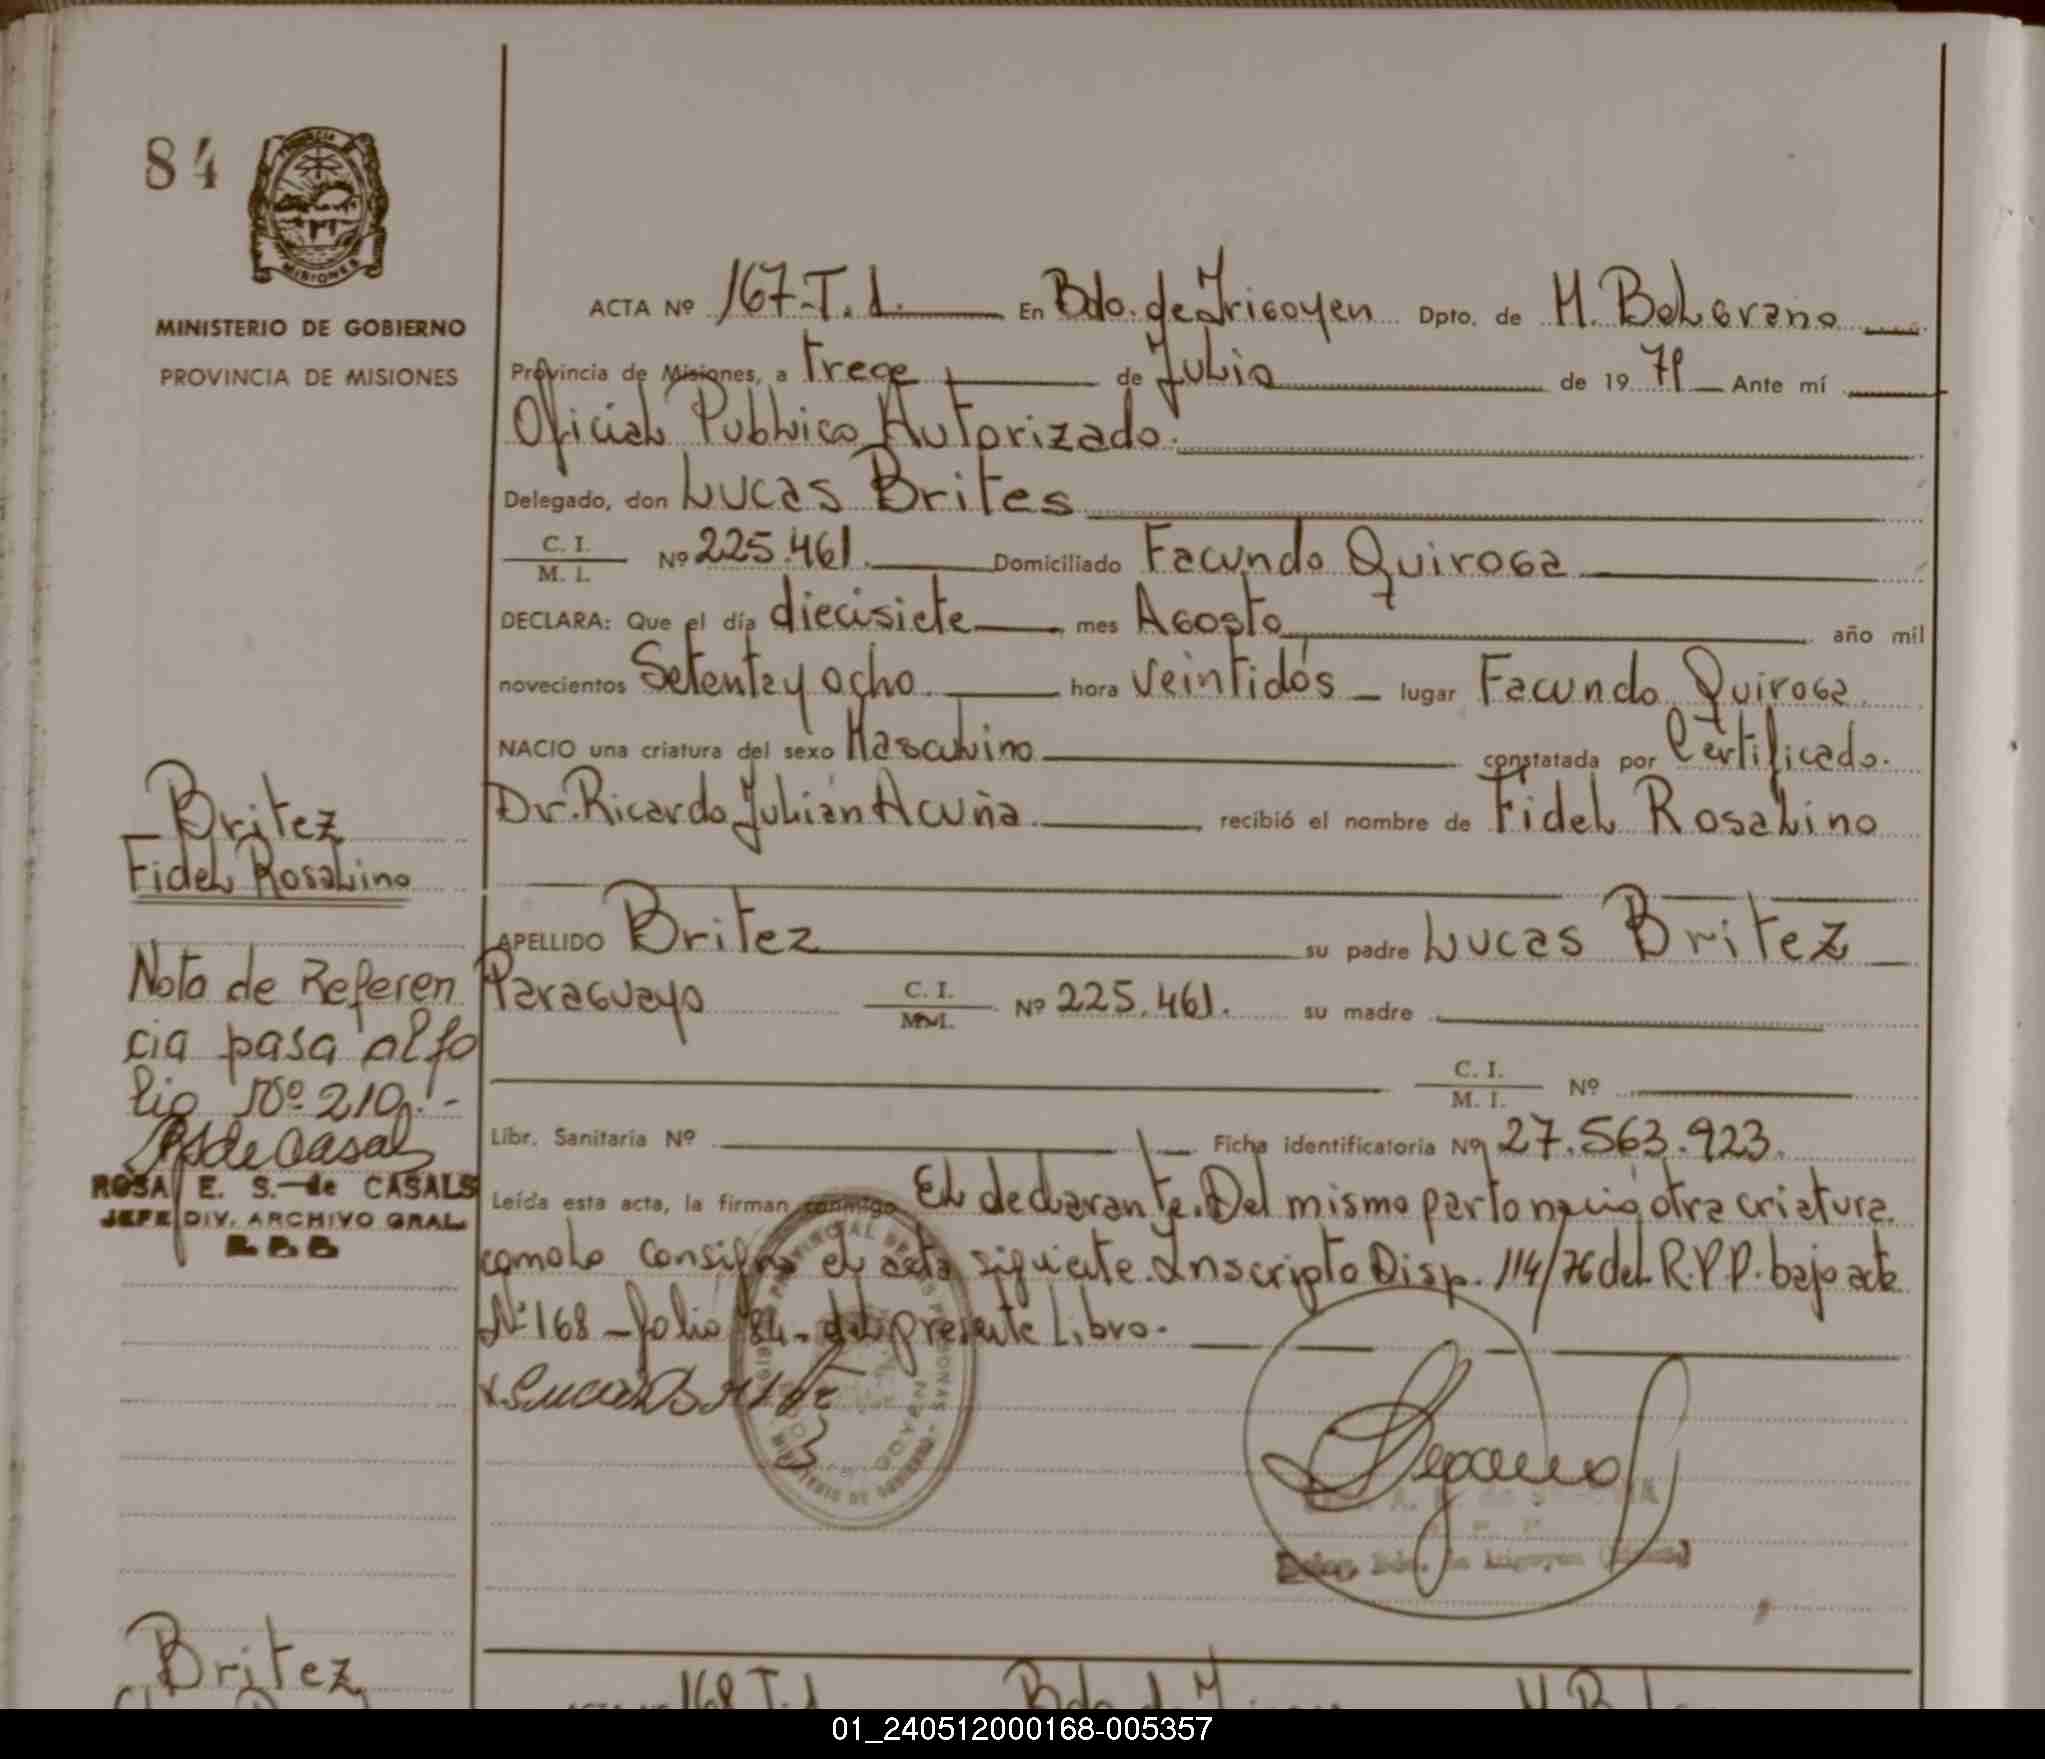 84
MISIONES
MINISTERIO DE GOBIERNO
PROVINCIA DE MISIONES
ACTA Nº 167-T. 1. En Bdo. de Irigoyen Dpto. de M. Belgrano
Provincia de Misiones, a trece de Julio de 1979 Ante mí
Oficial Publico Autorizado.
Delegado, don Lucas Brites
C. I. / M. I. Nº 225.461. Domiciliado Facundo Quiroga
DECLARA: Que el día diecisiete mes Agosto año mil
novecientos Setenta y ocho hora veintidós lugar Facundo Quiroga.
NACIO una criatura del sexo Masculino constatada por Certificado.
Dr. Ricardo Julián Acuña. recibió el nombre de Fidel Rosalino
Britez
Fidel Rosalino
APELLIDO Britez su padre Lucas Britez
Paraguayo C. I. / M.I. Nº 225.461. su madre
C. I. / M. I. Nº
Nota de Referen
cia pasa al fo
lio Nº 210.-
RS de Casals
ROSA E. S. de CASALS
JEFE DIV. ARCHIVO GRAL.
Libr. Sanitaria Nº Ficha identificatoria Nº 27.563.923.
Leída esta acta, la firman conmigo El declarante. Del mismo parto nació otra criatura.
como lo consigna el acta siguiente. Inscripto Disp. 114/76 del R.P.P. bajo acta
Nº 168 - folio 84 - del presente Libro.
MINISTERIO DE GOBIERNO
Britez
168 T. 1
01_240512000168-005357